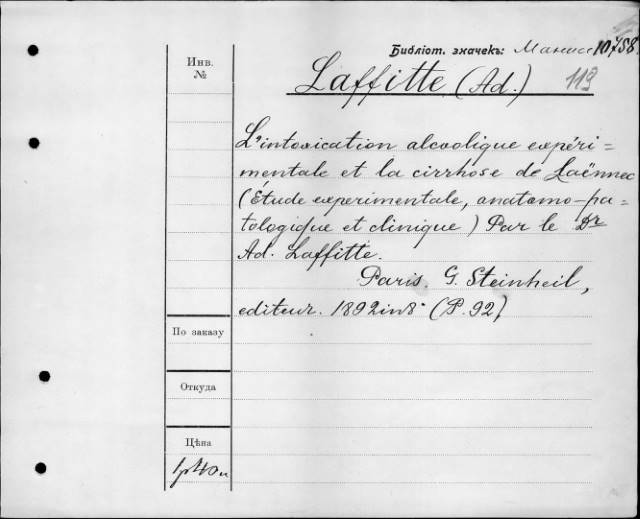 Библіот. значекъ: 10758
Инв.
№
Laffitte (Ad.) 113
L'intoxication alcoolique expéri=
mentale et la cirrhose de Laënnec
(Étude experimentale, anatomo-pa=
tologique et clinique) Par le Dr
Ad. Laffitte.
Paris, G. Steinheil,
editeur. 1892 in 8° (P. 92)
По заказу
Откуда
Цѣна
1р 40к